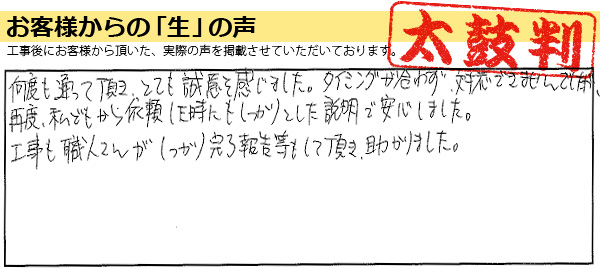 お客様からの「生」の声
太鼓判
工事後にお客様から頂いた、実際の声を掲載させていただいております。
何度も通って頂き、とても誠意を感じました。タイミングが合わず、対応できませんでしたが、
再度、私どもから依頼した時にもしっかりとした説明で安心しました。
工事も職人さんがしっかり完了報告等もして頂き、助かりました。